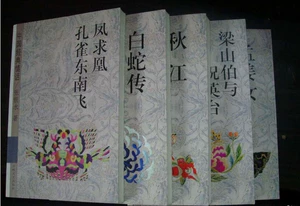 凤求凰
孔雀东南飞
白蛇传
秋江
梁山伯与
祝英台
孟姜女